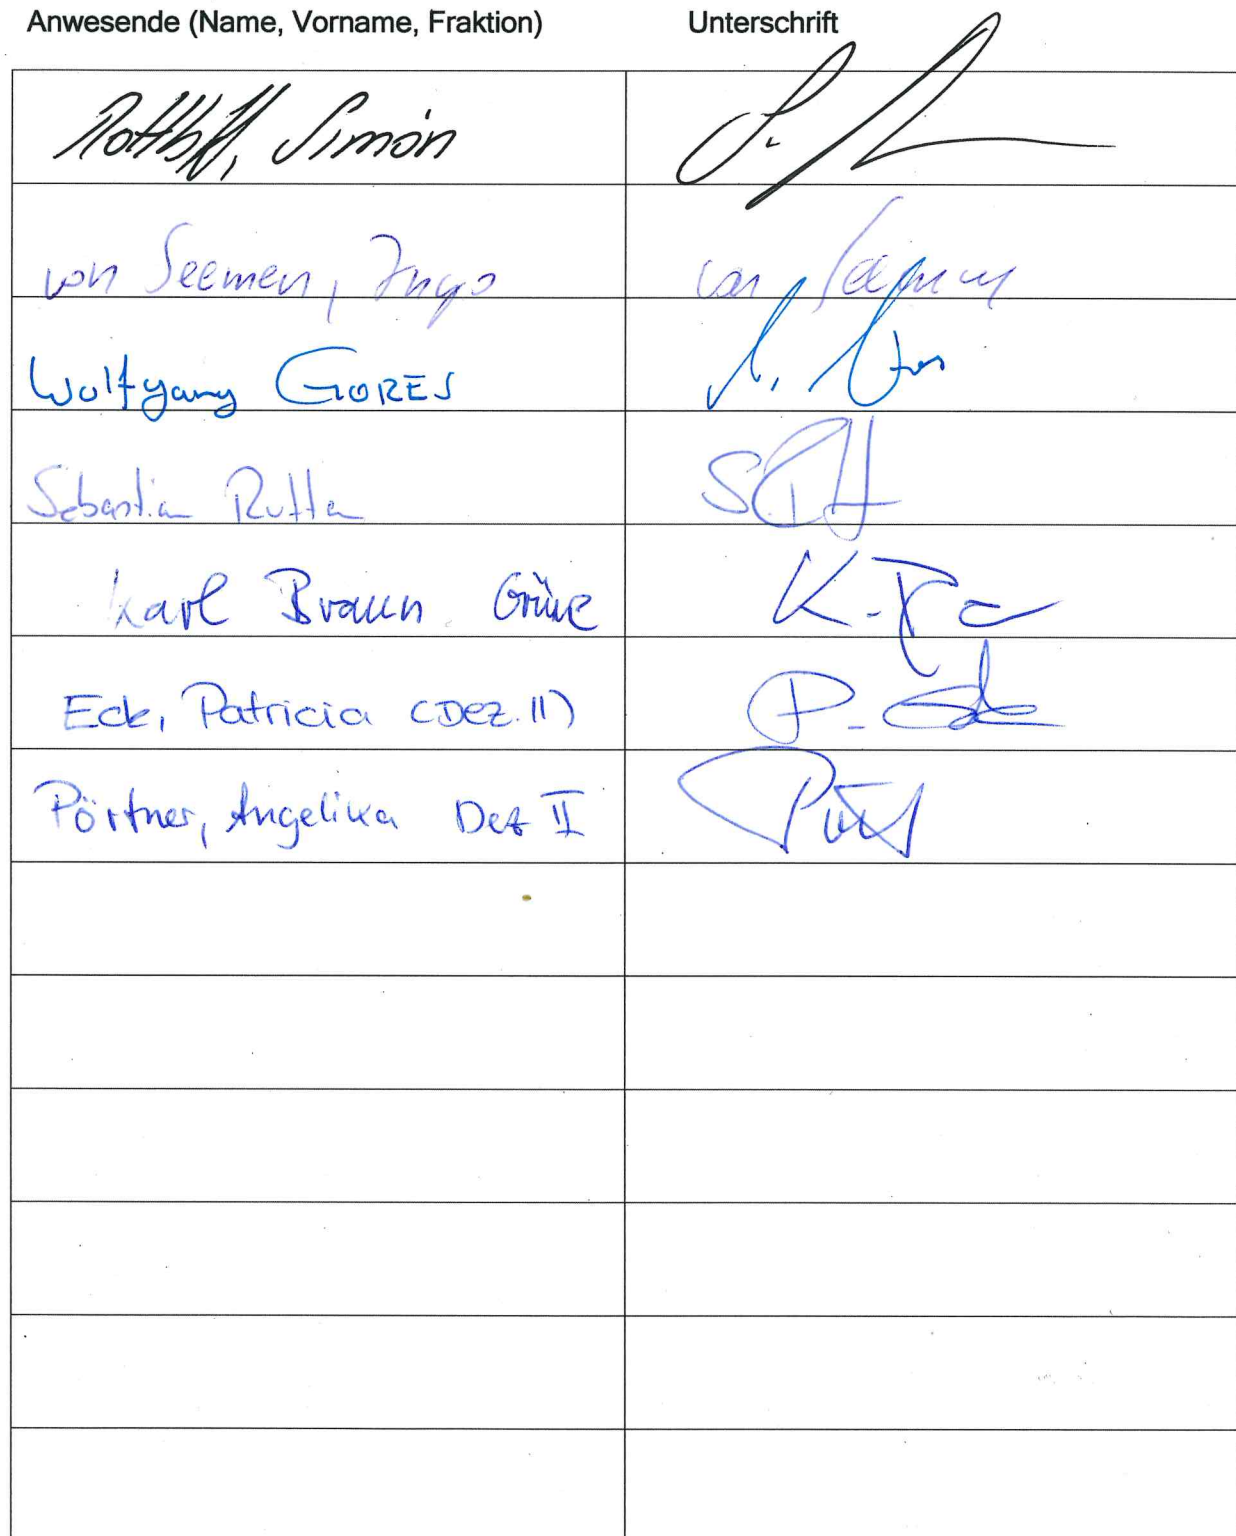 Anwesende (Name, Vorname, Fraktion) Unterschrift
Rotthoff, Simon
von Seemen, Ingo von Seemen
Wolfgang GORES
Sebastian Rutten
Karl Braun Grüne
Eck, Patricia (Dez. II) P. Eck
Pörtner, Angelika Dez II